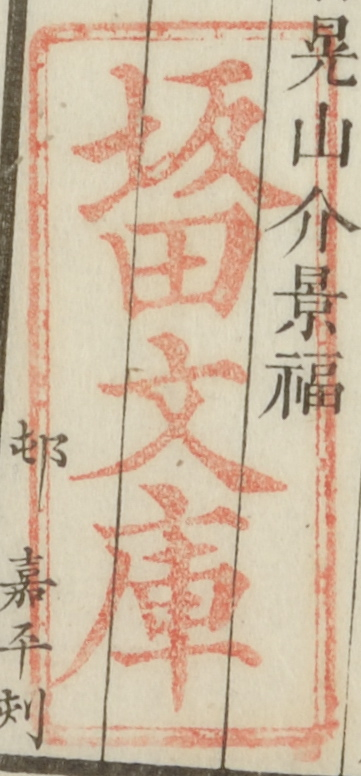 晃山介景福
坂田文庫
邨嘉平刻